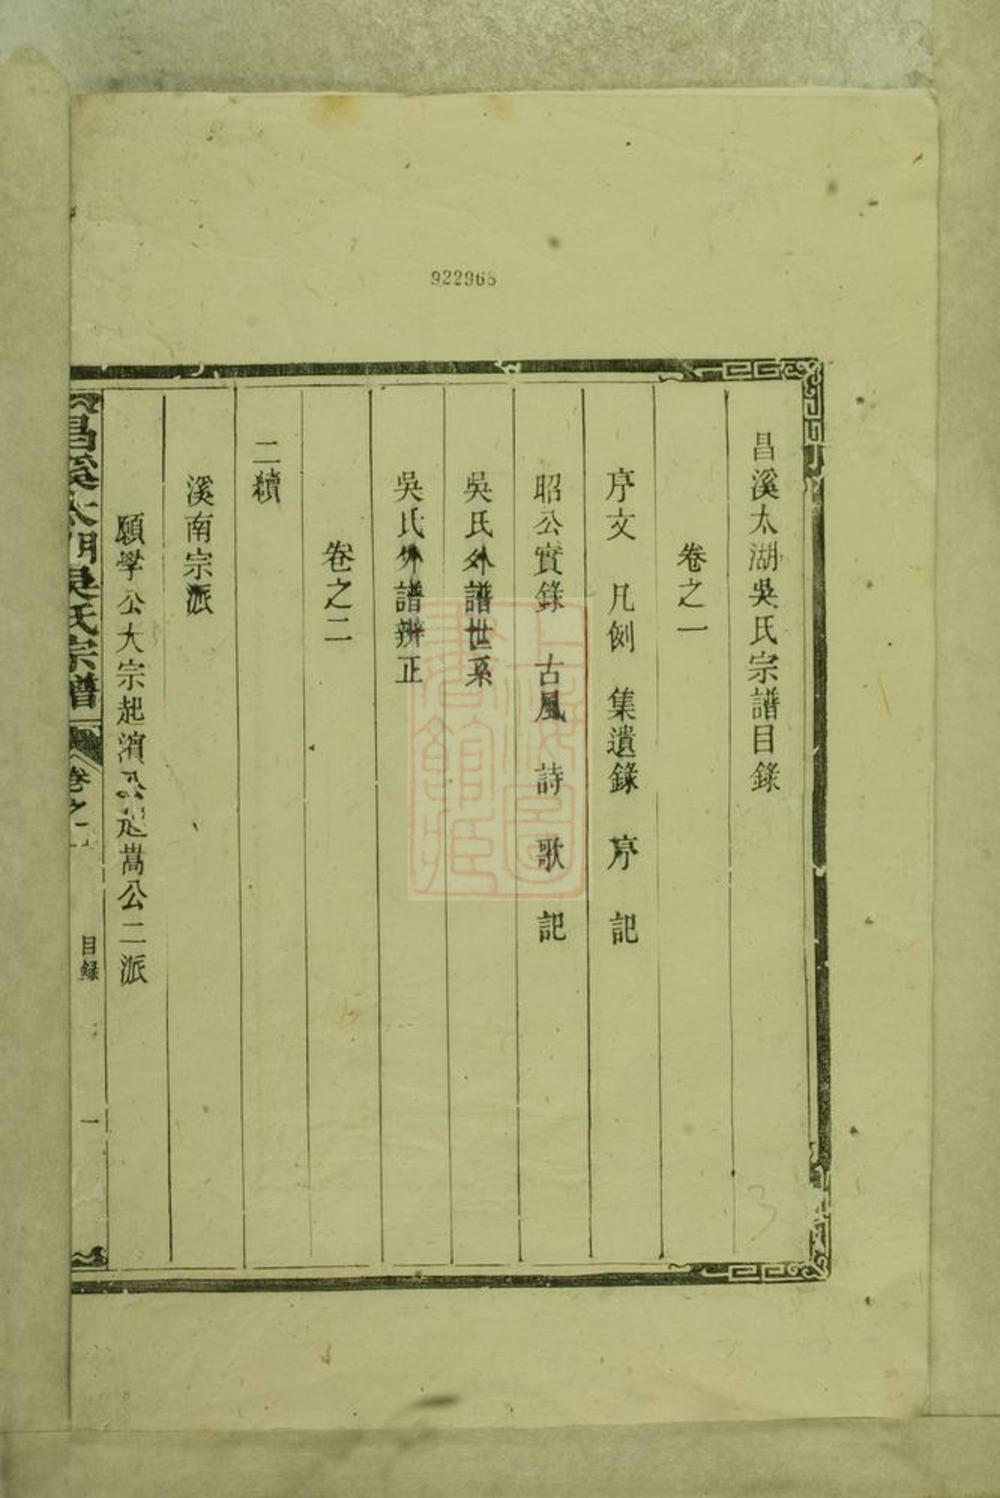 922968
昌溪太湖吳氏宗譜目錄
卷之一
序文 凡例 集遺錄 序 記
昭公實錄 古風 詩 歌 記
吳氏外譜世系
吳氏外譜辨正
卷之二
二續
溪南宗派
願學公大宗起濵公起嵩公二派
昌溪太湖吳氏宗譜 卷之一 目録 一
上海圖書館藏